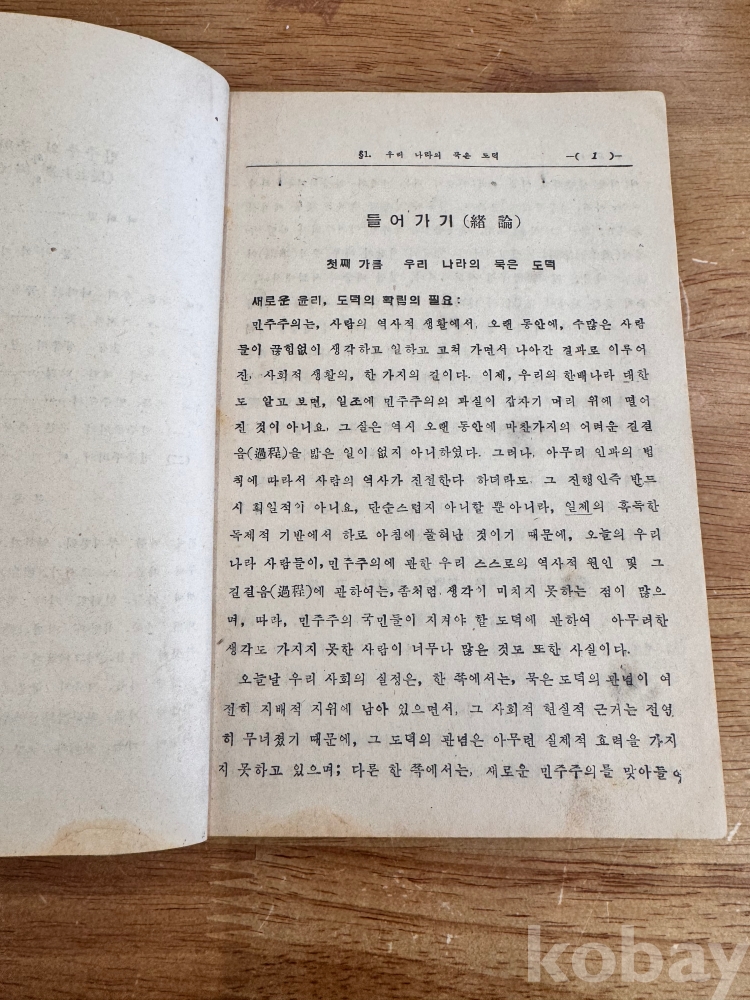 §1. 우리 나라의 묵은 도덕 —( 1 )—
들어가기 (緖 論)
첫째 가름 우리 나라의 묵은 도덕
새로운 윤리, 도덕의 확립의 필요:
민주주의는, 사람의 역사적 생활에서, 오랜 동안에, 수많은 사람
들이 끊힘없이 생각하고 일하고 고쳐 가면서 나아간 결과로 이루어
진, 사회적 생활의, 한 가지의 길이다. 이제, 우리의 한배나라 대한
도 알고 보면, 일조에 민주주의의 과실이 갑자기 머리 위에 떨어
진 것이 아니요, 그 실은 역시 오랜 동안에 마찬가지의 어려운 길걸
음(過程)을 밟은 일이 없지 아니하였다. 그러나, 아무리 인과의 법
칙에 따라서 사람의 역사가 진전한다 하더라도, 그 진행인즉 반드
시 획일적이 아니요, 단순스럽지 아니할 뿐아니라, 일제의 혹독한
독제적 기반에서 하로 아침에 풀혀난 것이기 때문에, 오늘의 우리
나라 사람들이, 민주주의에 관한 우리 스스로의 역사적 원인 및 그
길걸음(過程)에 관하여는, 좀처럼 생각이 미치지 못하는 점이 많으
며, 따라, 민주주의 국민들이 지켜야 할 도덕에 관하여 아무러한
생각도 가지지 못한 사람이 너무나 많은 것도 또한 사실이다.
오늘날 우리 사회의 실정은, 한 쪽에서는, 묵은 도덕의 관념이 여
전히 지배적 지위에 남아 있으면서, 그 사회적 현실적 근거는 전연
히 무너졌기 때문에, 그 도덕의 관념은 아무런 실제적 효력을 가지
지 못하고 있으며; 다른 한 쪽에서는, 새로운 민주주의를 맞아들
kobay